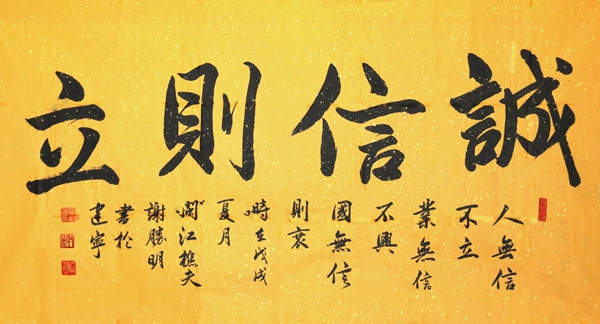 誠信則立
人無信
不立
業無信
不興
國無信
則衰
時在戊戌
夏月
閩江樵夫
謝勝明
書於
建寧